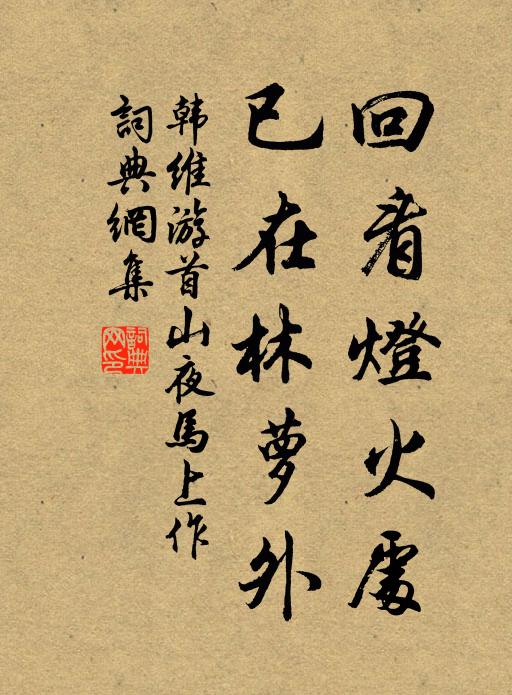 回看燈火處
已在林萝外
韩維游首山夜馬上作
詞典網集
詞典网印